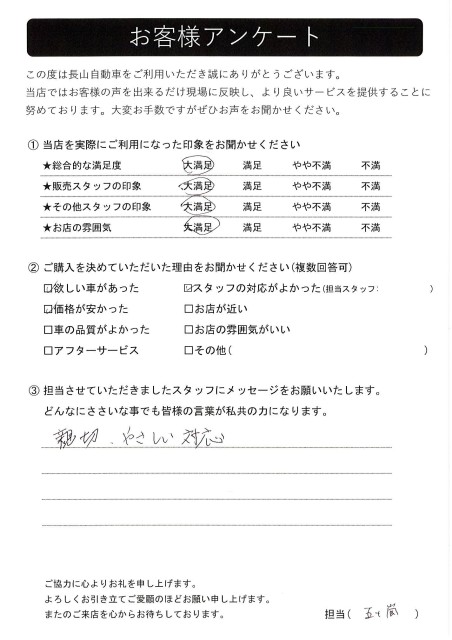 お客様アンケート
この度は長山自動車をご利用いただき誠にありがとうございます。
当店ではお客様の声を出来るだけ現場に反映し、より良いサービスを提供することに
努めております。大変お手数ですがぜひお声をお聞かせください。
① 当店を実際にご利用になった印象をお聞かせください
★総合的な満足度 大満足 満足 やや不満 不満
★販売スタッフの印象 大満足 満足 やや不満 不満
★その他スタッフの印象 大満足 満足 やや不満 不満
★お店の雰囲気 大満足 満足 やや不満 不満
② ご購入を決めていただいた理由をお聞かせください(複数回答可)
☑欲しい車があった ☑スタッフの対応がよかった(担当スタッフ: )
☑価格が安かった □お店が近い
□車の品質がよかった □お店の雰囲気がいい
□アフターサービス □その他( )
③ 担当させていただきましたスタッフにメッセージをお願いいたします。
どんなにささいな事でも皆様の言葉が私共の力になります。
親切、やさしい対応
ご協力に心よりお礼を申し上げます。
よろしくお引き立てご愛顧のほどお願い申し上げます。
またのご来店を心からお待ちしております。 担当( 五十嵐 )